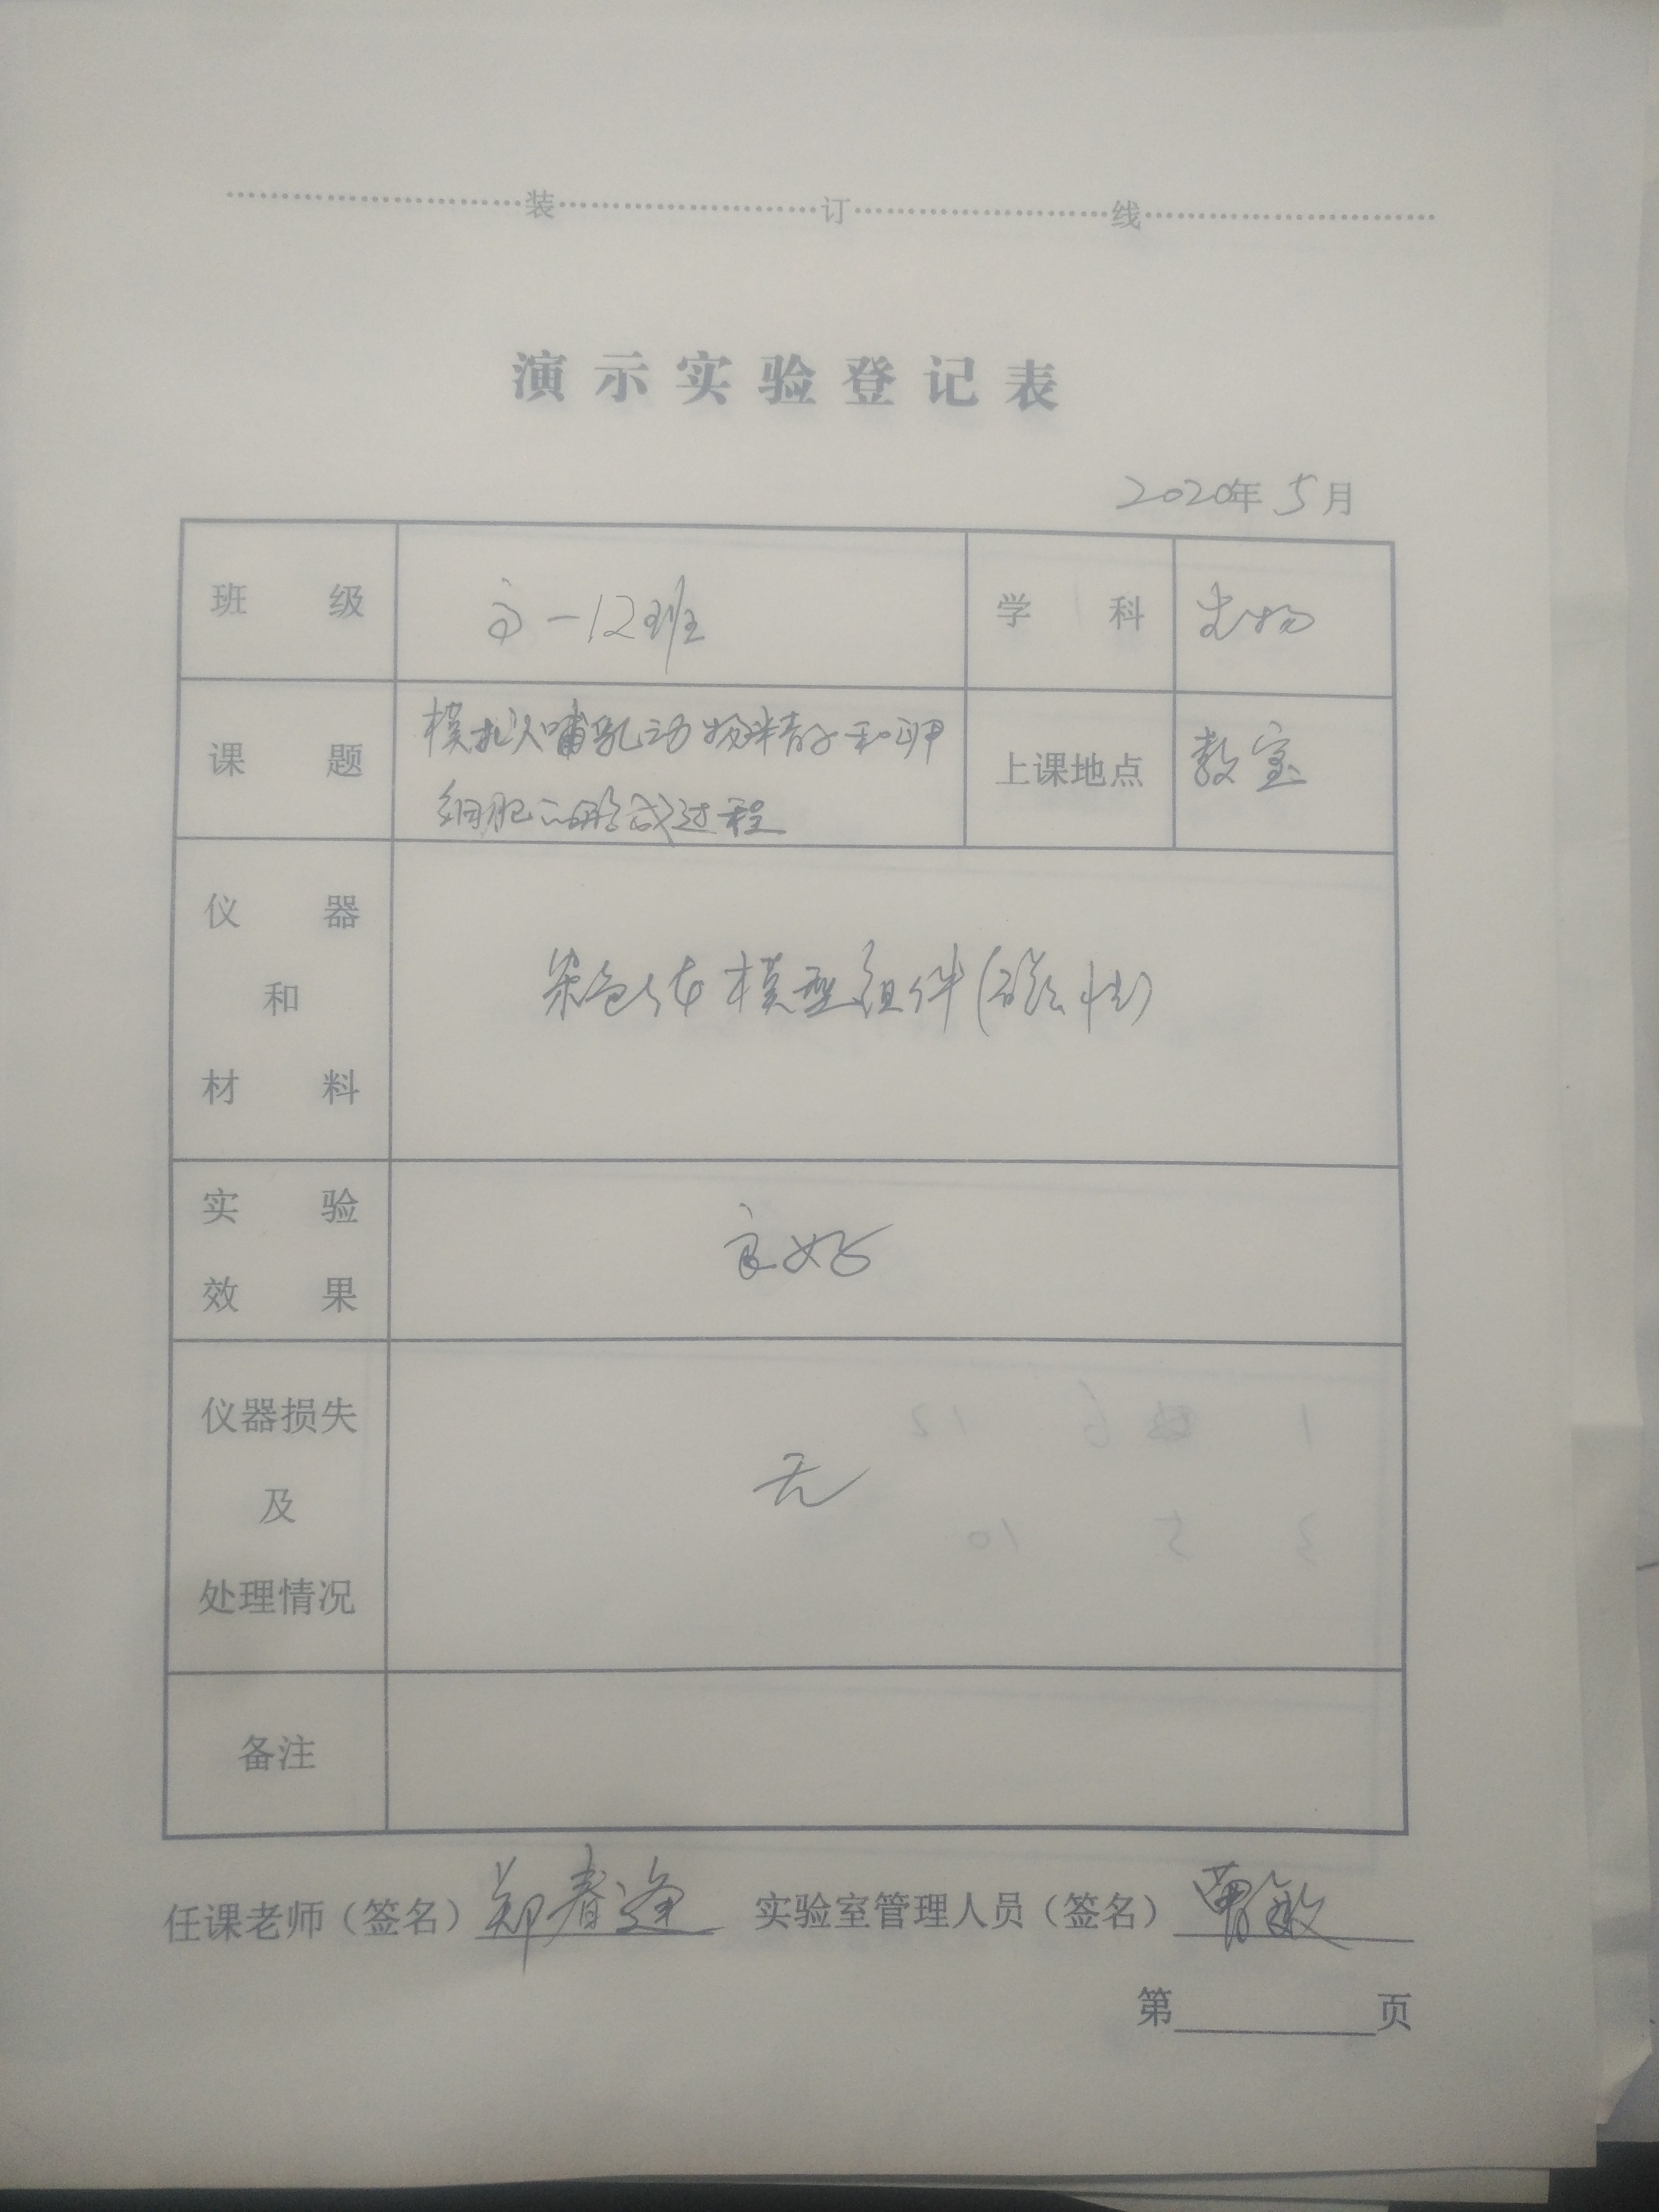 装 订 线
演示实验登记表
2020年 5月
班级 高一12班 学科 生物
课题 模拟哺乳动物精子和卵
细胞的形成过程 上课地点 教室
仪器
和
材料
染色体模型组件(磁性)
实验
效果
良好
仪器损失
及
处理情况
无
备注
任课老师（签名） 郑春逢 实验室管理人员（签名） 曹敏
第 页